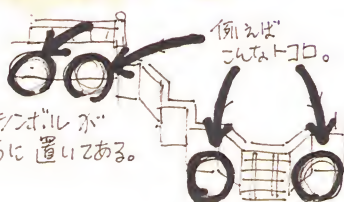 例えば
こんなトコロ。
シンボルが
うに 置いてある。